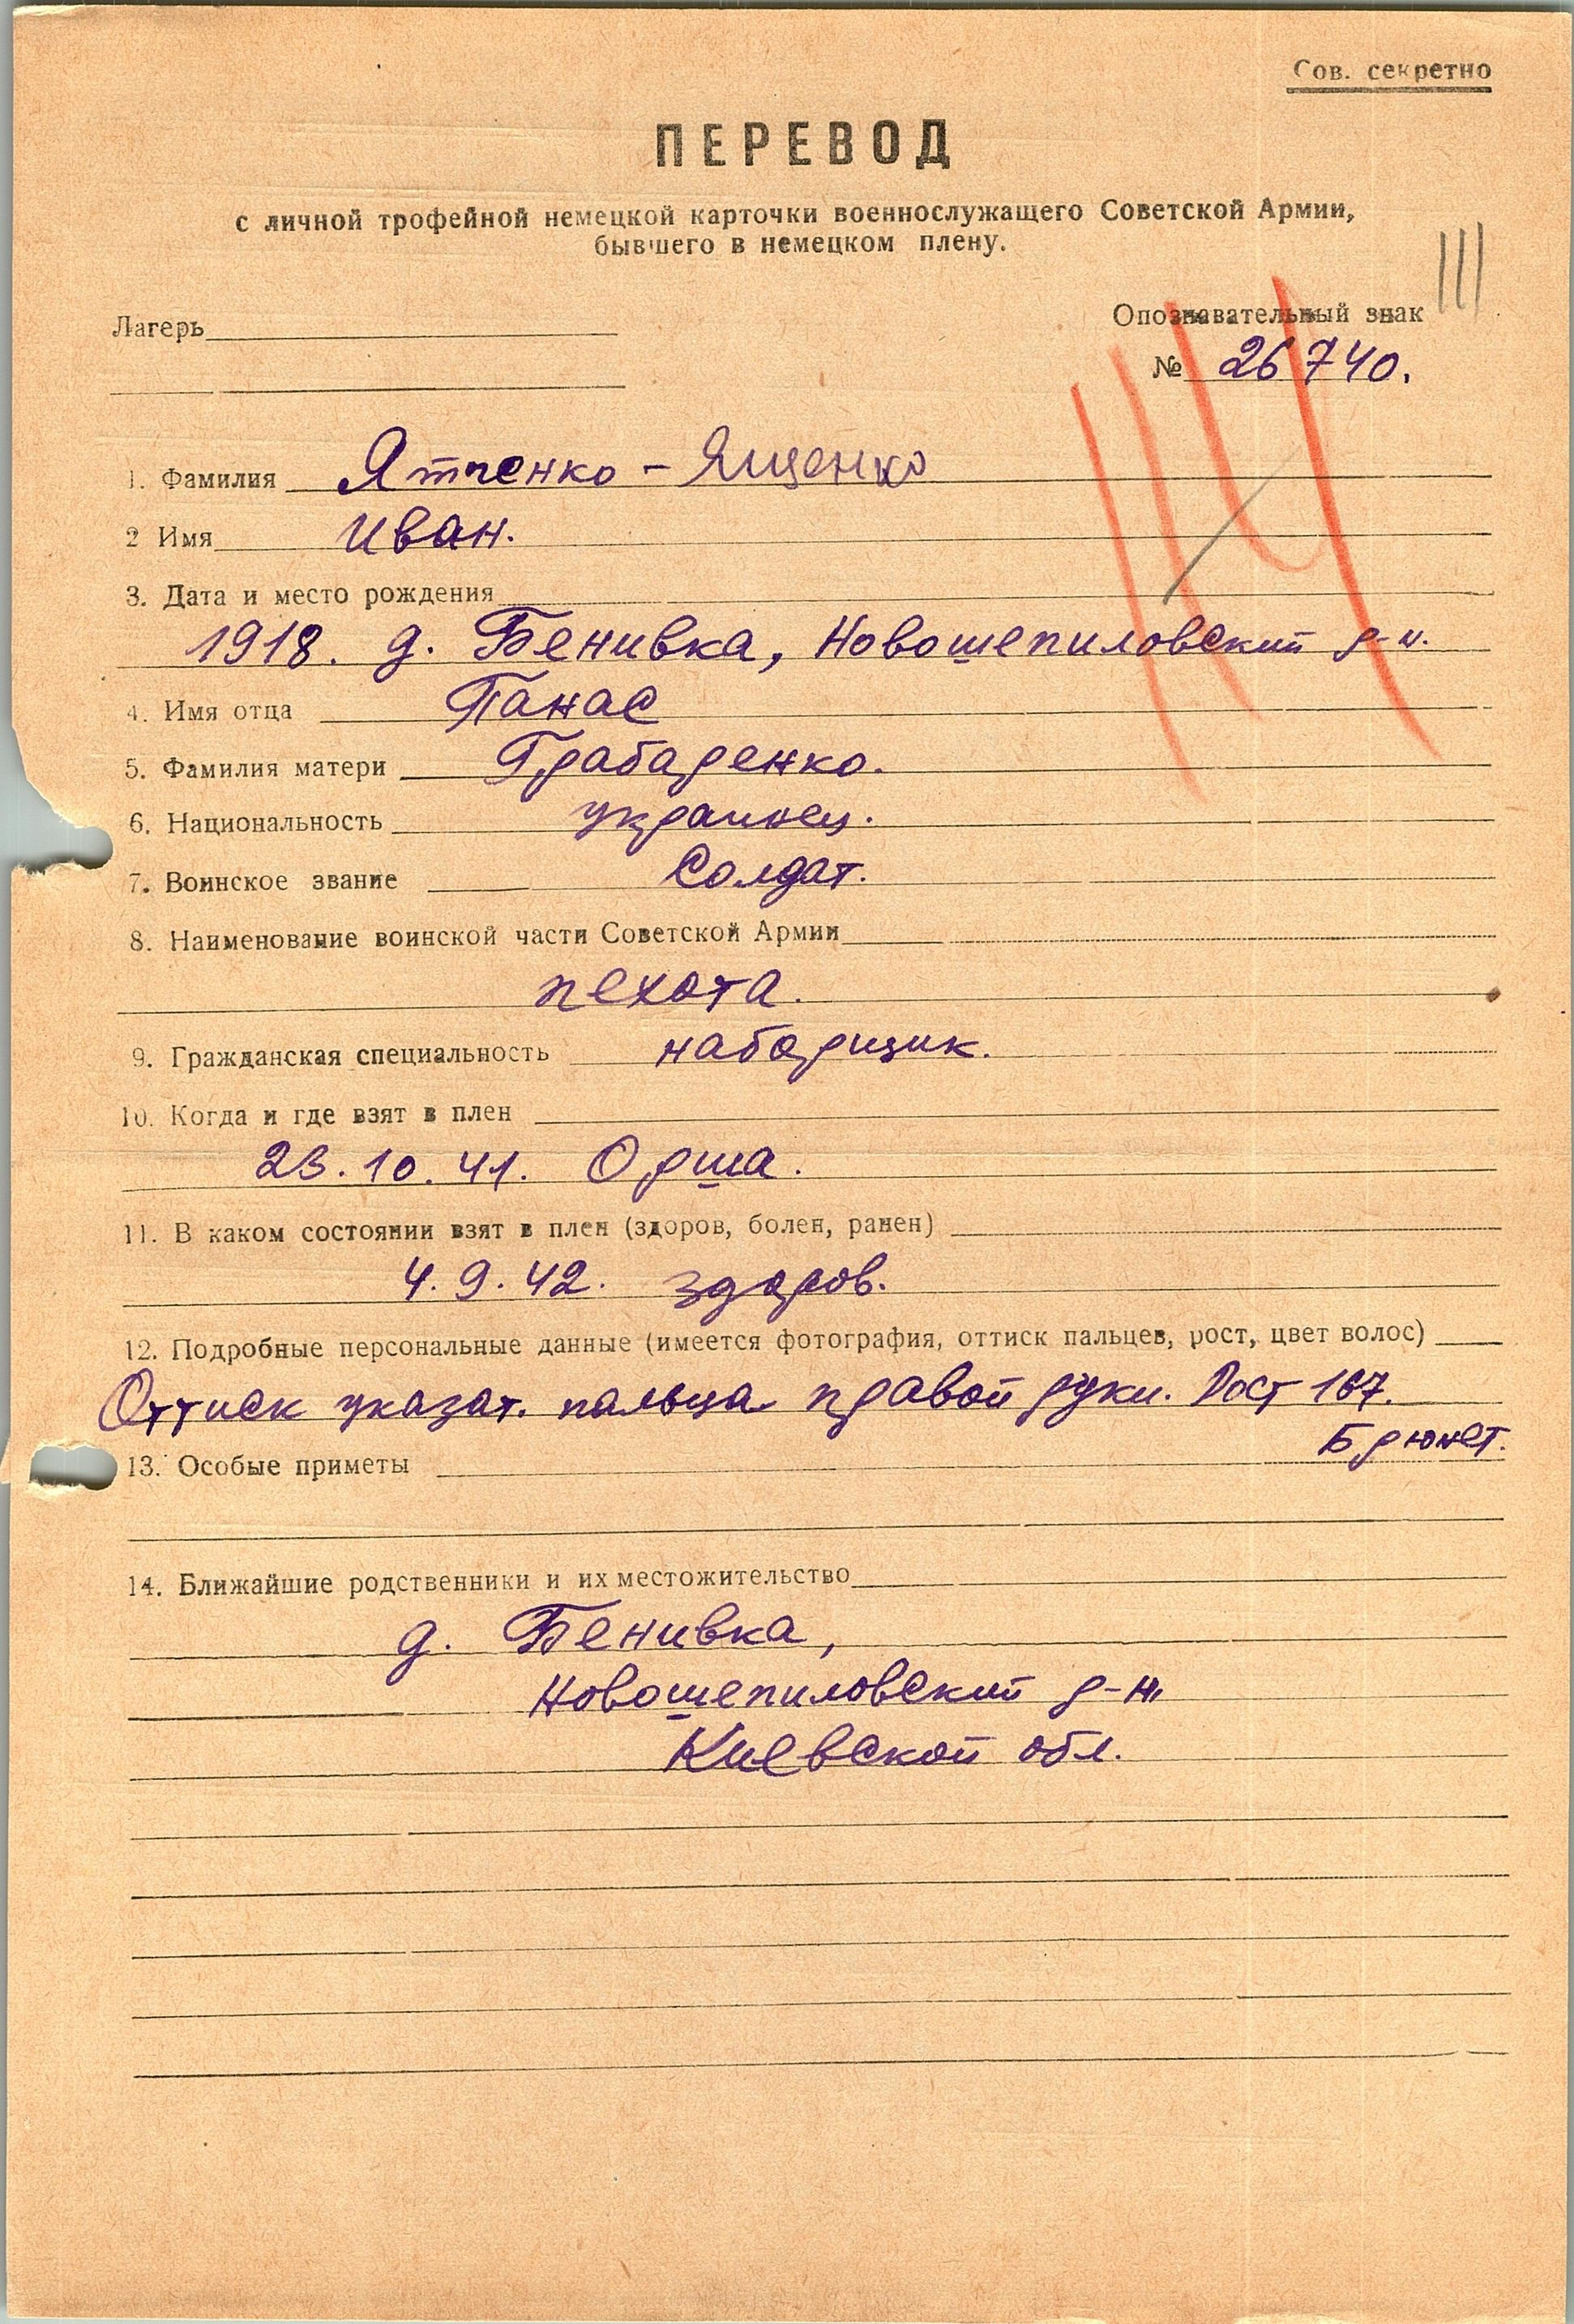 Сов. секретно
ПЕРЕВОД
с личной трофейной немецкой карточки военнослужащего Советской Армии,
бывшего в немецком плену.
III
Лагерь
Опознавательный знак
№ 26740.
1. Фамилия Ятченко - Ященко
2 Имя Иван.
3. Дата и место рождения
1918. д. Бенивка, Новошепиловский р-н.
4. Имя отца Панас
5. Фамилия матери Грабаренко.
6. Национальность украинец.
7. Воинское звание Солдат.
8. Наименование воинской части Советской Армии
пехота.
9. Гражданская специальность наборщик.
10. Когда и где взят в плен
23.10.41. Орша.
11. В каком состоянии взят в плен (здоров, болен, ранен)
4.9.42. здоров.
12. Подробные персональные данные (имеется фотография, оттиск пальцев, рост, цвет волос)
Оттиск указат. пальца правой руки. Рост 167.
Брюнет.
13. Особые приметы
14. Ближайшие родственники и их местожительство
д. Бенивка,
Новошепиловский р-н,
Киевской обл.